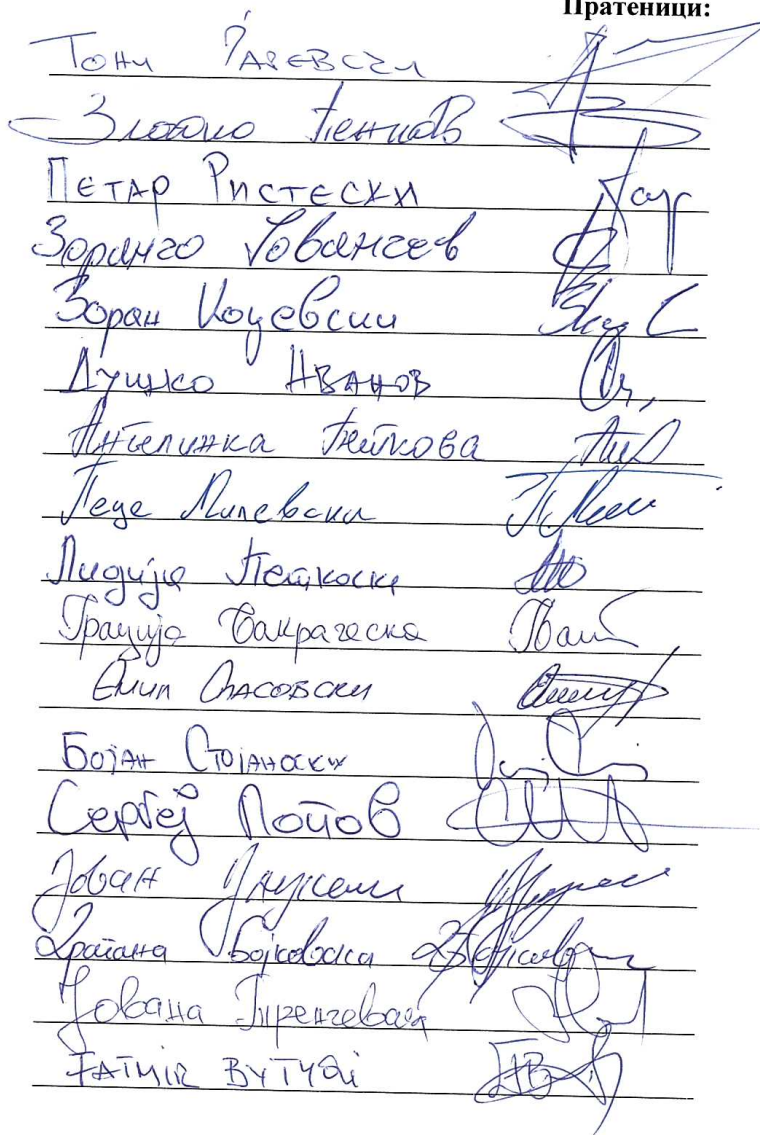 Пратеници:
Тони Јаревски
Златко Пенков
Петар Ристески
Зоранчо Јованчев
Зоран Коцевски
Душко Иванов
Ангелинка Пейкова
Пеце Милевски
Лидија Петкоски
Грација Бакраческа
Емил Спасовски
Бојан Стојаноски
Сергеј Попов
Јован
Драгана Бојковска
Јована Тренчевска
FATMIR BYTYQI